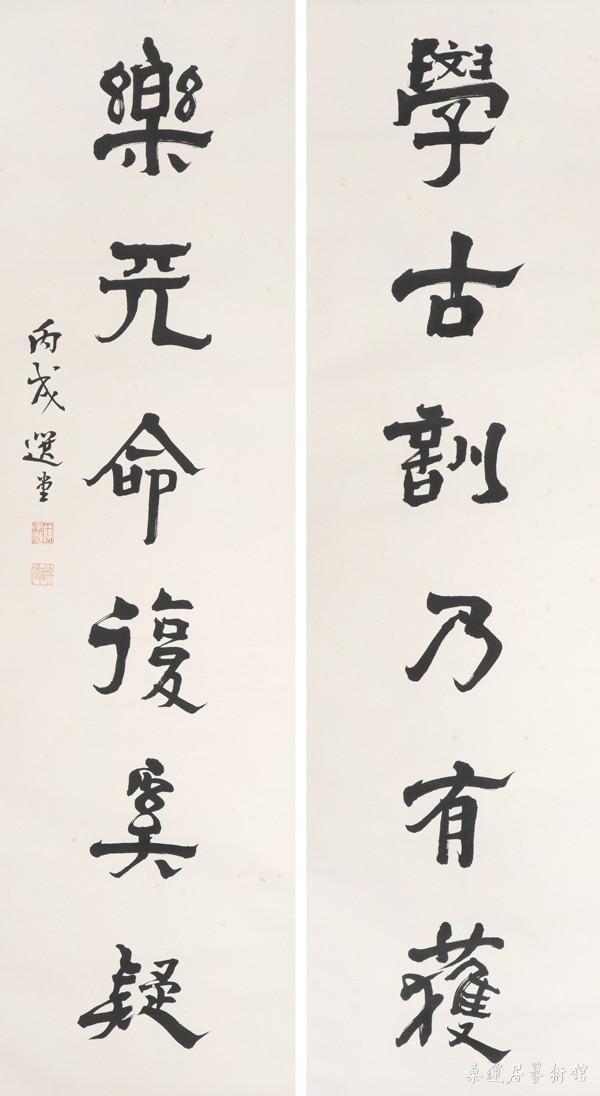 學古訓乃有獲
樂天命復奚疑
丙戌選堂
桑蓮居藝術館